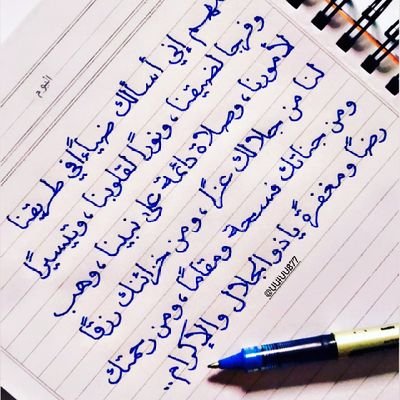 اليوم
ـهم إني أسألك ضياءً في طريقنا
وفرجا لضيقنا ، ونورًا لقلوبنا ، وتيسيرًا
لأمورنا ، وصلاة دائمة على نبينا ، وهب
لنا من جلالك عزًا ، ومن خزائنك رزقًا
ومن جناتك فسحة ومقامًا ، ومن رحمتك
رضًا ومغفرةً يا ذو الجلال والإكرام..